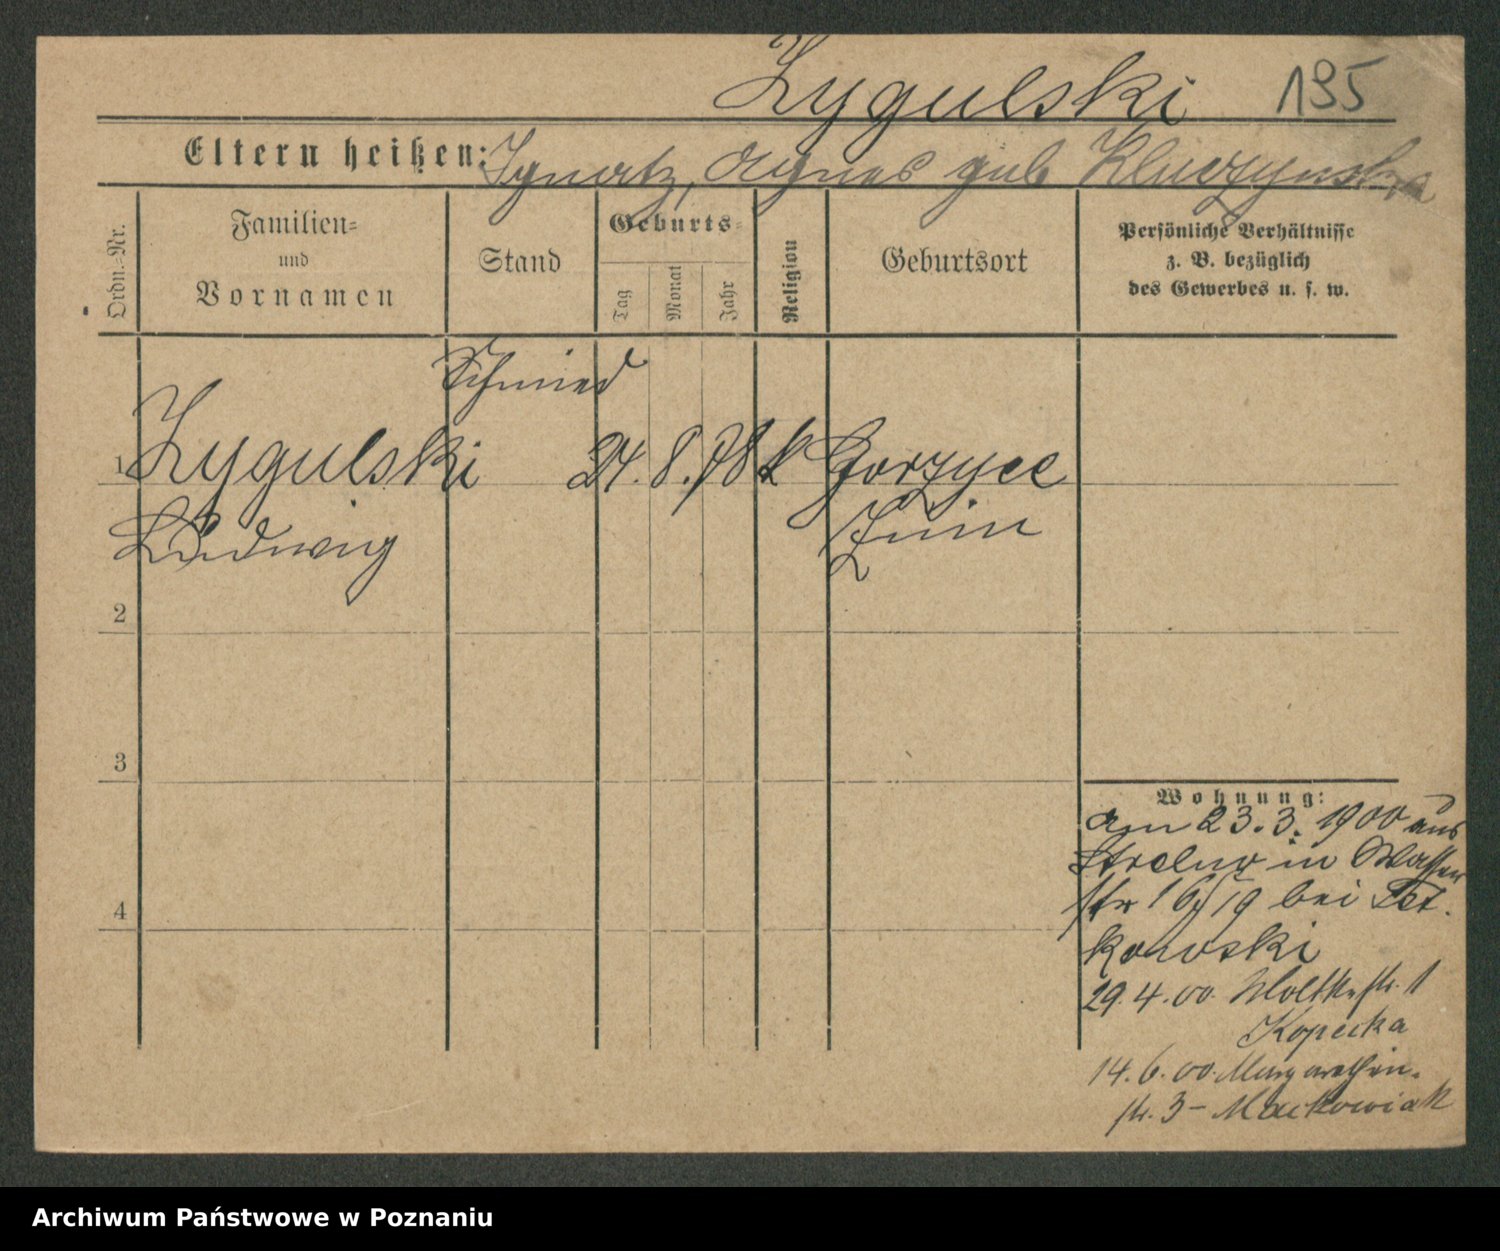 Zygulski 195
Eltern heißen: Ignatz, Agnes geb Kluczynska
Ordn.-Nr.
Familien-
und
Vornamen
Stand
Geburts-
Tag
Monat
Jahr
Religion
Geburtsort
Persönliche Verhältnisse
z. B. bezüglich
des Gewerbes u. s. w.
Schmied
1 Zygulski 24. 8. 78 k Gorzyce
Ludwig Znin
2
3
4
Wohnung:
am 23. 3. 1900 aus
Strelno in Wasser
str 16/19 bei
kowski
29. 4. 00. Moltkestr. 1
Kopecka
14. 6. 00. Margarethen-
str. 3 - Mackowiak
Archiwum Państwowe w Poznaniu